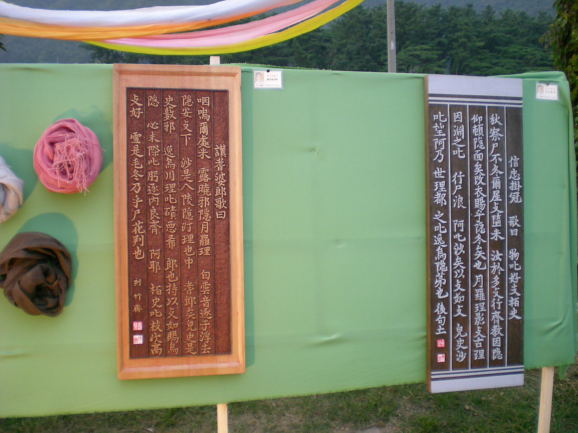 讚耆婆郎歌曰
咽嗚爾處米 露曉邪隱月羅理 白雲音逐于浮去
隱安支下 沙是八陵隱汀理也中 耆郎矣皃史是
史藪邪 逸烏川理叱磧惡希 郎也持以支如賜烏
隱 心未際叱肹逐內良齊 阿耶 栢史叱枝次高
支好 雪是毛冬乃乎尸花判也
信忠掛冠 歌曰 物叱好支栢史
秋察尸不冬爾屋支墮米 汝於多支行齊敎因隱
仰頓隱面矣改衣賜乎隱冬矣也 月羅理影支古理
因淵之叱 行尸浪 阿叱沙矣以支如支 皃史沙
叱望阿乃 世理都 之叱逸烏隱第也 後句亡